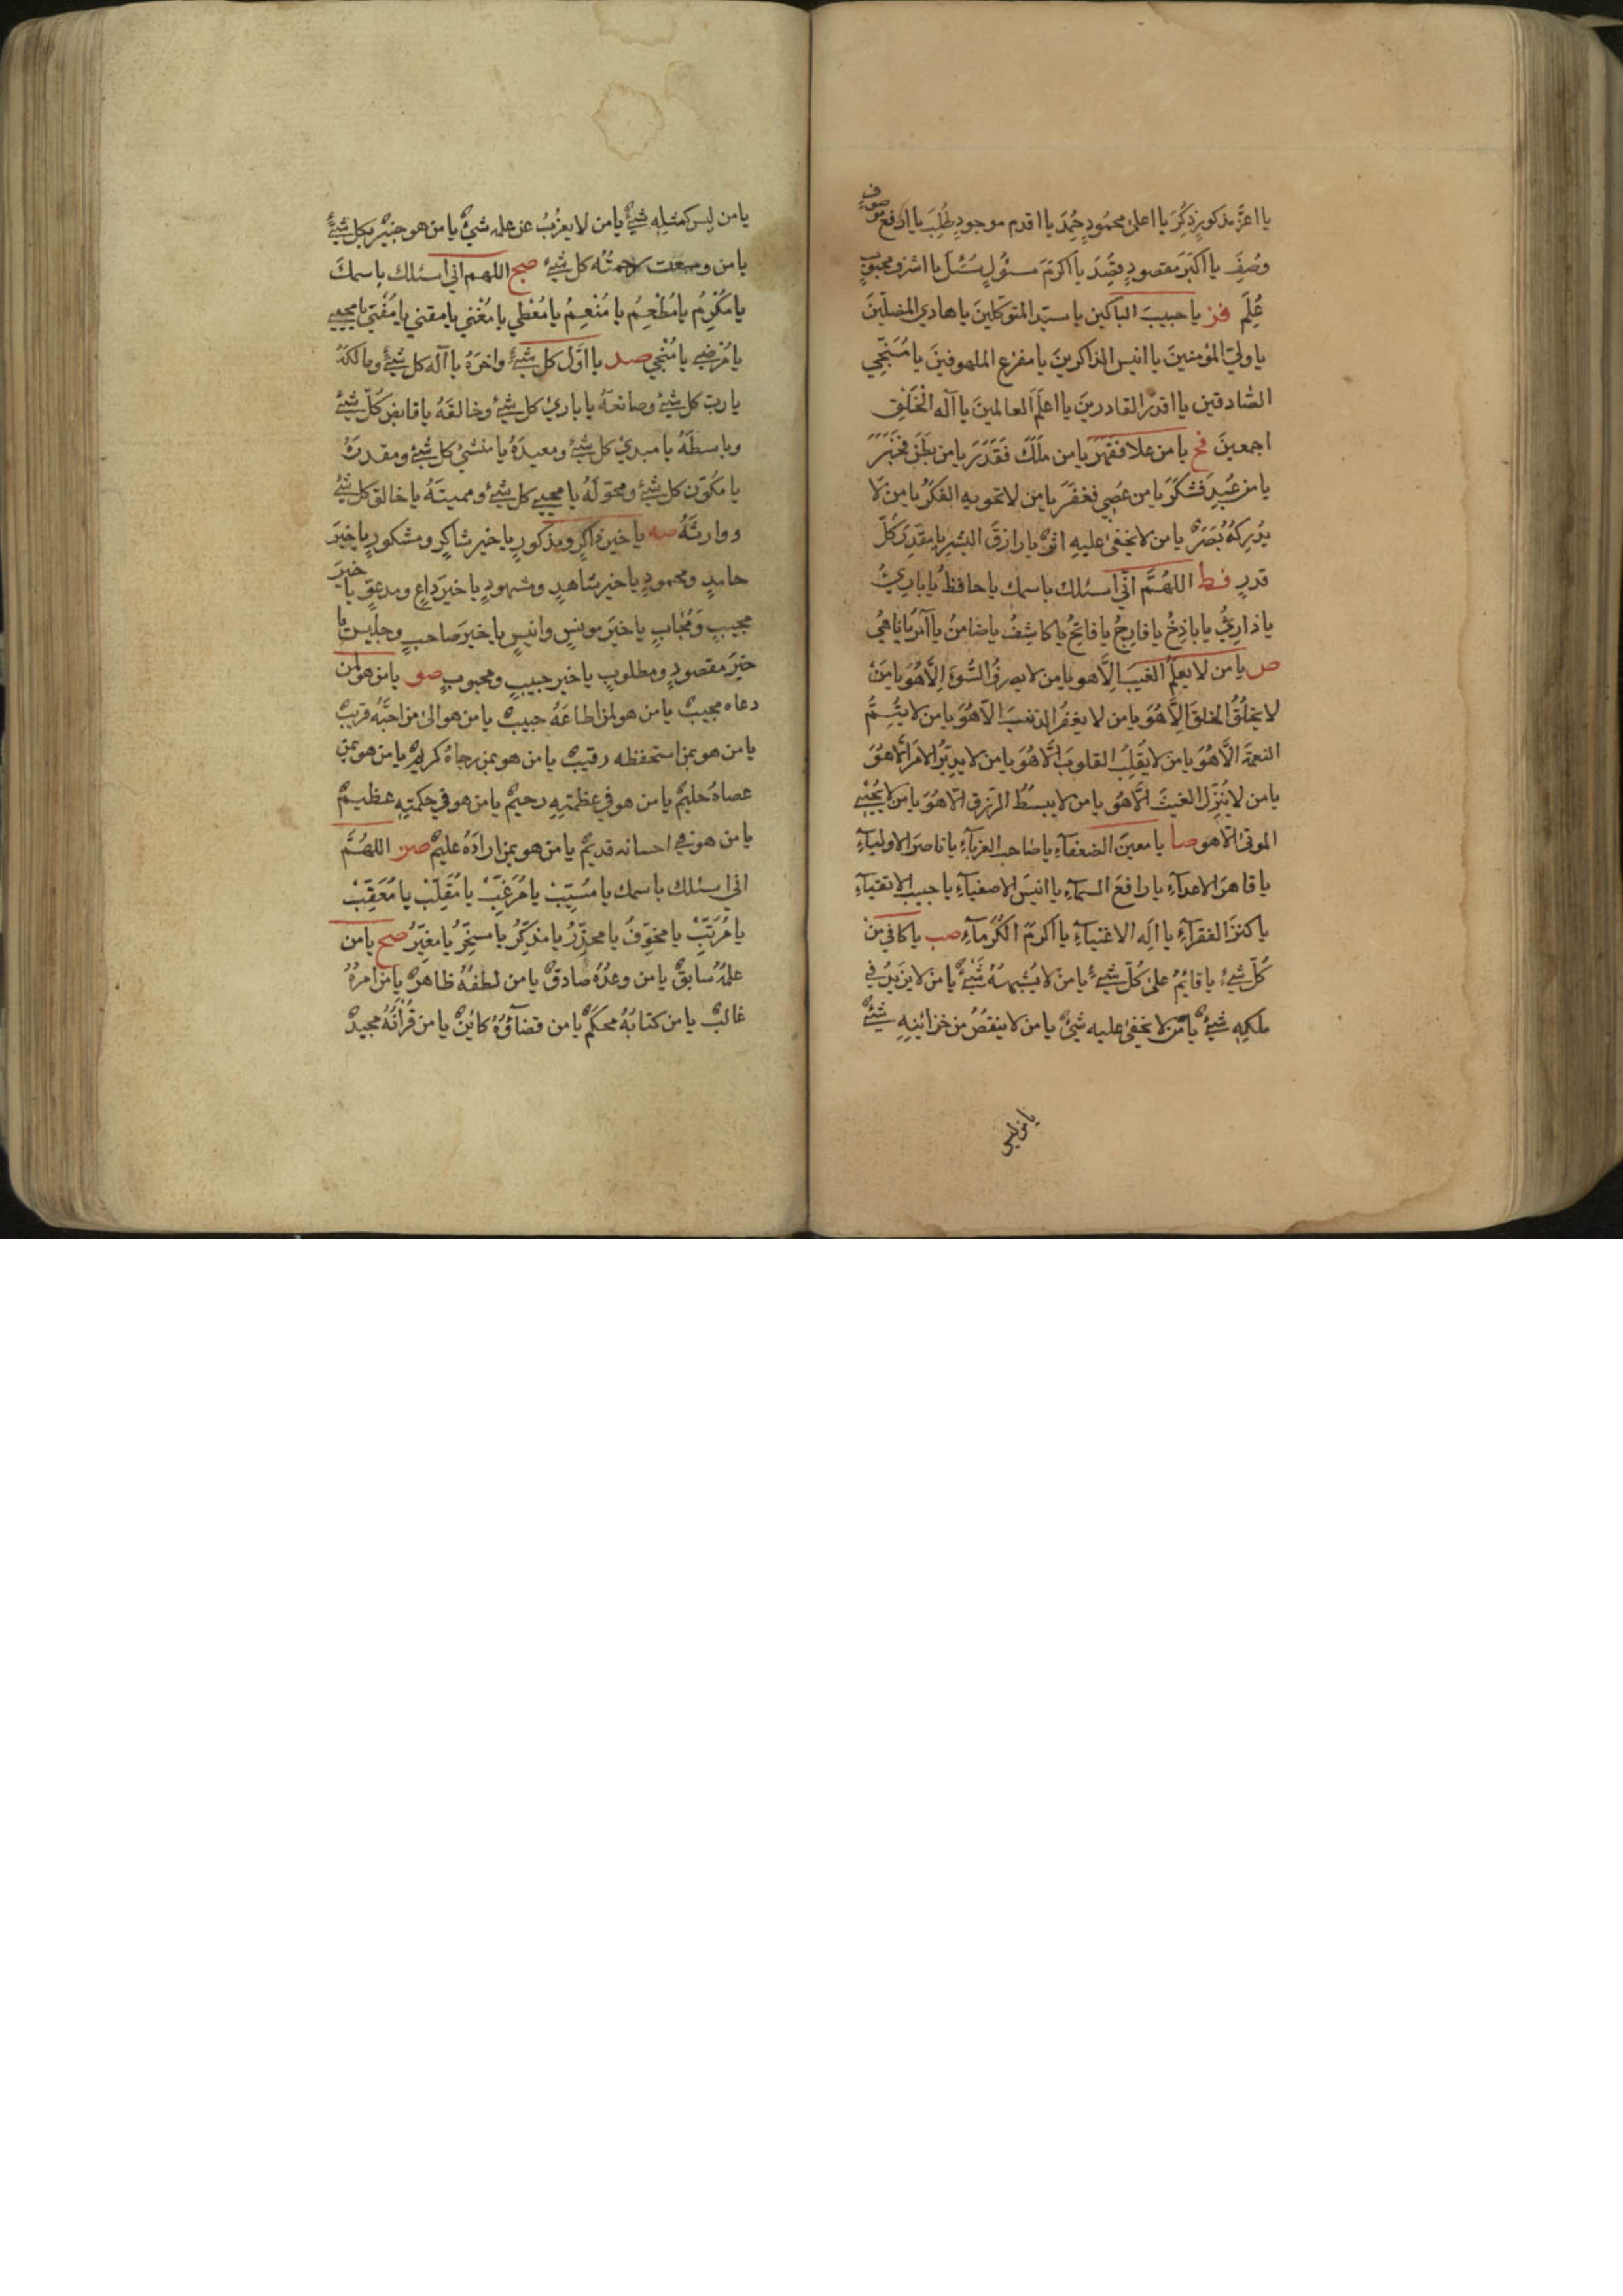 يا اعزَّ مذكورٍ ذُكِرَ يا اعلى محمُودٍ حُمِدَ يا اقدم موجودٍ طُلِبَ يا ارفع موصوفٍ
وُصِفَ يا اكبَرَ مقصودٍ قُصِدَ يا اكرمَ مسئُولٍ سُئِلَ يا اشرف محبوبٍ
عُلِمَ فز يا حبيبَ الباكين يا سيّد المتوكلينَ يا هادي المضلّينَ
يا وليّ المؤمنينَ يا انيس الذاكرينَ يا مفزع الملهوفينَ يا مُنَجِّي
الصّادقين يا اقدرَ القادرينَ يا اعلَمَ العالمينَ يا اله الخَلْقِ
اجمعينَ فح يا من علا فقهَرَ يا من ملَكَ فَقَدَرَ يا من بَطَنَ فَخَبَرَ
يا من عُبِدَ فشكَرَ يا من عُصِي فغفَرَ يا من لا تحويه الفكَرُ يا من لا
يُدرِكهُ بَصَرٌ يا من لا يخفى عليهِ اثرٌ يا رازقَ البشر يا مقدِّرَ كُلّ
قدرٍ فط اللهُمَّ انّي اسئلك باسمك يا حافظُ يا باريُ
يا ذارِئُ يا باذِخُ يا فارِجُ يا فاتِحُ يا كاشِفُ يا ضامنُ يا آمرُ يا ناهي
ص يا من لا يعلَمُ الغيبَ الّا هو يا من لا يصرفُ السُّوءَ الّا هُوَ يا مَنْ
لا يخلُقُ الخلقَ الّا هُوَ يا من لا يغفرُ الذنبَ الّا هُوَ يا من لا يُتِمُّ
النعمةَ الّا هُوَ يا من لا يُقَلِّبُ القلوبَ الّا هُوَ يا من لا يدبّرُ الامرَ الّا هُوَ
يا من لا يُنَزِّل الغيثَ الّا هُو يا من لا يبسُطُ الرّزق الّا هُوَ يا من لا يُحْيِي
الموتىٰ الّا هو صا يا معينَ الضعفآءِ يا صاحب الغربآءِ يا ناصرَ الاوليآءِ
يا قاهرَ الاعدآءِ يا رافعَ السمآءِ يا انيسَ الاصفيآءِ يا حبيب الاتقيآءِ
يا كنزَ الفقرآءِ يا الٰه الاغنيآءِ يا اكرمَ الكُرمآءِ صب يا كافي من
كُلّ شيءٍ يا قائمُ علىٰ كُلّ شيءٍ يا منْ لا يُشبِهُهُ شَيْءٌ يا من لا يزيدُ في
ملكِهِ شيءٌ يا من لا يخفىٰ عليه شيءٌ يا من لا ينقُصُ من خزائنِهِ شيءٌ
يا من ليس
يا من ليس كمثلِهِ شيءٌ يا من لا يعزُبُ عن علمه شيءٌ يا من هو خبيرٌ بكل شيءٍ
يا من وسعت رحمتُه كل شيءٍ صج اللهم اني اسئلك باسمكَ
يا مُكْرِمُ يا مُطْعِمُ يا مُنْعِمُ يا مُعْطي يا مُغْني يا مقني يا مُفْني يا محيي
يا مُرضي يا مُنْجي صد يا اوَّل كل شيءٍ واخرَهُ يا اله كل شيءٍ ومالكَهُ
يا ربّ كل شيءٍ وصانعَهُ يا باريَ كل شيءٍ وخالقَهُ يا قابض كُلّ شيءٍ
وباسطَهُ يا مبديَ كل شيءٍ ومعيدَهُ يا منشئَ كل شيءٍ ومقدرَهُ
يا مكوّن كل شيءٍ ومحوّلَهُ يا محيي كل شيءٍ ومميتَهُ يا خالق كل شيءٍ
ووارثَهُ صه يا خيرَ ذاكرٍ ومذكورٍ يا خير شاكرٍ ومشكورٍ يا خيرَ
حامدٍ ومحمودٍ يا خير شاهدٍ ومشهودٍ يا خيرَ داعٍ ومدعوٍّ يا خيرَ
مجيبٍ ومُجابٍ يا خيَر مونسٍ وانيسٍ يا خيرَ صاحبٍ وجليسٍ يا
خيرَ مقصودٍ ومطلوبٍ يا خير حبيبٍ ومحبوبٍ صو يا من هو لمن
دعاه مجيبٌ يا من هو لمن اطاعَهُ حبيبٌ يا من هو الىٰ من احبَّهُ قريبٌ
يا من هو بمن استحفظه رقيبٌ يا من هو بمن رجاهُ كريمٌ يا من هو بمن
عصاهُ حليمٌ يا من هو في عظمتِهِ رحيمٌ يا من هو في حكمتِهِ عظيمٌ
يا من هو في احسانه قديمٌ يا من هو بمن ارادَهُ عليمٌ صز اللهُمَّ
اني اسئلك باسمك يا مُسَبِّبُ يا مُرَغِّبُ يا مُقَلِّبُ يا مُعَقِّبُ
يا مُرَتِّبُ يا مخوِّفُ يا محذِّرُ يا مذكِّرُ يا مسخِّرُ يا مغيِّرُ صح يا من
علمُهُ سابقٌ يا من وعدُهُ صادقٌ يا من لطفُهُ ظاهرٌ يا من امرُهُ
غالبٌ يا من كتابُهُ محكَمٌ يا من قضآؤُهُ كائنٌ يا من قُرآنُهُ مجيدٌ